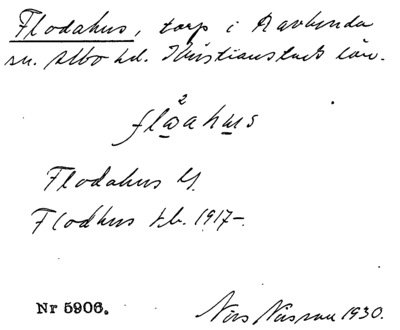 Flodahus, torp i Ravlunda
sn. Albo hd. Kristianstads län.
flåahus
Flodahus
Flodhus t.b. 1917-.
Nr 5906.
Nils Näsman 1930.